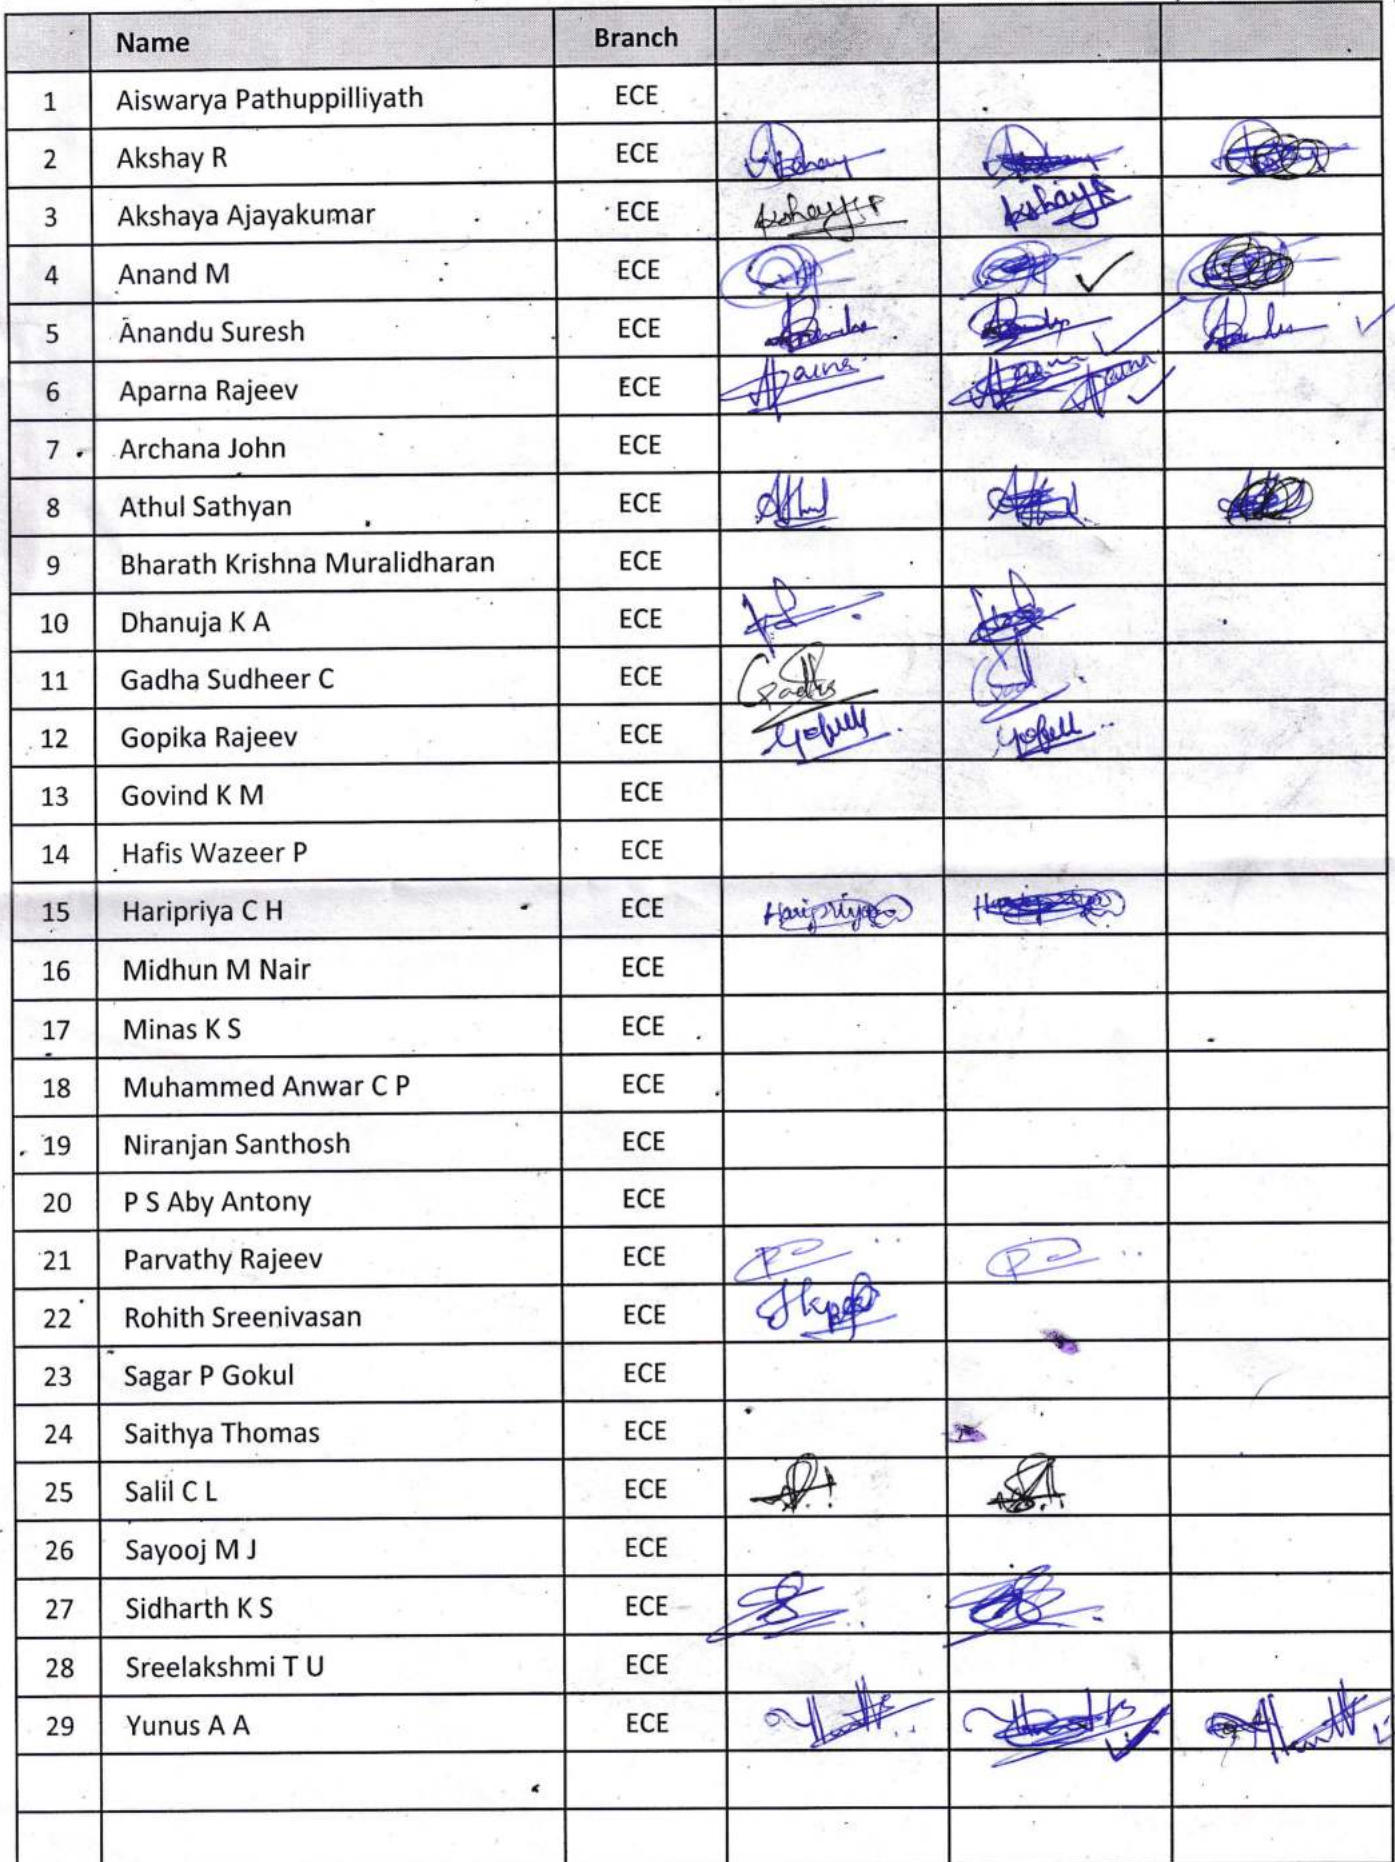 Name Branch
1 Aiswarya Pathuppilliyath ECE
2 Akshay R ECE Akshay
3 Akshaya Ajayakumar ECE
4 Anand M ECE
5 Anandu Suresh ECE
6 Aparna Rajeev ECE Aparna
7 Archana John ECE
8 Athul Sathyan ECE Athul
9 Bharath Krishna Muralidharan ECE
10 Dhanuja K A ECE
11 Gadha Sudheer C ECE
12 Gopika Rajeev ECE
13 Govind K M ECE
14 Hafis Wazeer P ECE
15 Haripriya C H ECE Haripriya
16 Midhun M Nair ECE
17 Minas K S ECE
18 Muhammed Anwar C P ECE
19 Niranjan Santhosh ECE
20 P S Aby Antony ECE
21 Parvathy Rajeev ECE
22 Rohith Sreenivasan ECE
23 Sagar P Gokul ECE
24 Saithya Thomas ECE
25 Salil C L ECE
26 Sayooj M J ECE
27 Sidharth K S ECE
28 Sreelakshmi T U ECE
29 Yunus A A ECE